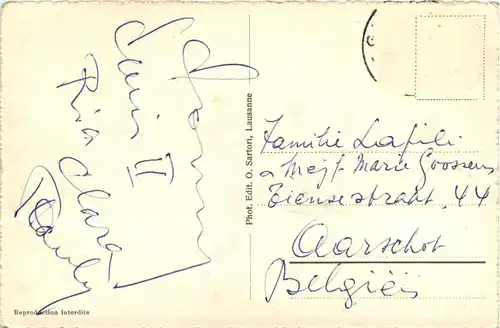 Louis II
Ria Clara
Phot. Edit. O. Sartori, Lausanne
Familie Lafili
& Mejf. Marie Goossens
Tiensestraat, 44
Aarschot
Belgiëis
Reproduction interdite